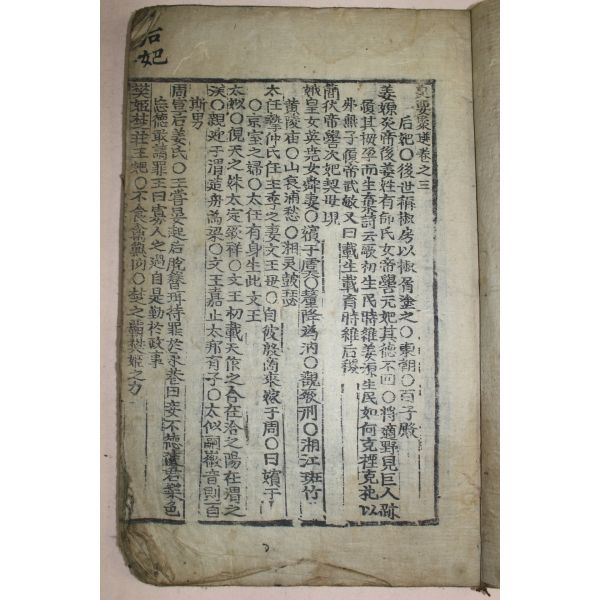 后妃
皇要聚選卷之三
后妃〇後世稱椒房以椒屑塗之〇東朝〇百子殿
姜嫄炎帝後姜姓有邰氏女帝嚳元妃其德不回〇將適野見巨人跡
履其拇孕而生棄詩云厥初生民時維姜嫄生民如何克禋克祀以
弗無子履帝武敏又曰載生載育時維后稷
簡狄帝嚳次妃契母
娥皇女英堯女舜妻〇嬪于虞〇釐降嬀汭〇觀厥刑〇湘江斑竹
黃陵庙〇山哀浦愁〇湘灵鼓瑟
太任摯仲氏任王季之妻文王母〇自彼殷商來嫁于周〇曰嬪于
〇京室之婦〇太任有身生此文王
太姒〇俔天之妹太定厥祥〇文王初載天作之合在洽之陽在渭之
涘〇親迎于渭造舟為梁〇文王嘉止太邦有子〇太姒嗣徽音則百
斯男
周宣后姜氏〇王嘗晏起后脫簪珥待罪於永巷曰妾不德使君樂色
忘德敢請罪王曰寡人之過自是勤於政事
樊姬楚莊王妃〇不食禽獸肉〇楚之霸樊姬之力